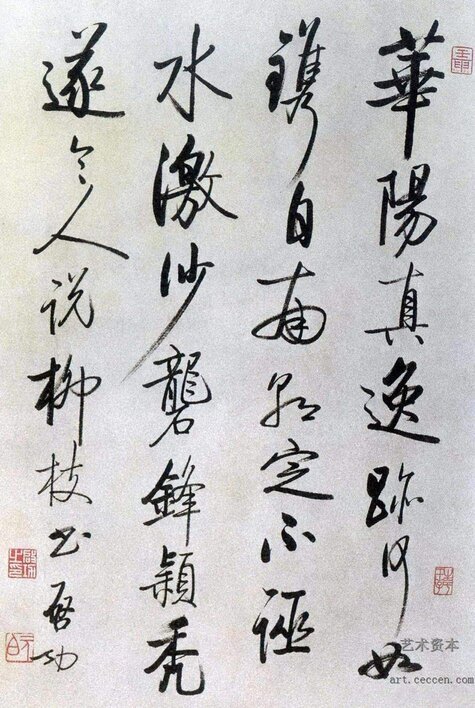 華陽真逸跡何如
鐫自南朝定不誣
水激沙礱鋒穎秃
遂令人说柳枝书 启功
艺术资本
art.ceccen.com